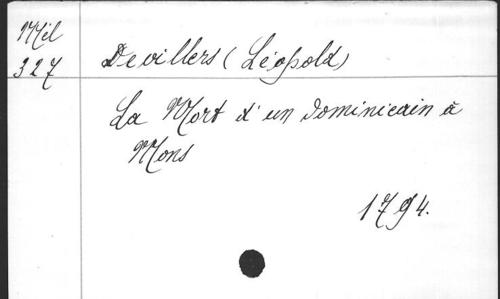 Mél
327
Devillers (Léopold)
La Mort d'un dominicain à
Mons
1794.